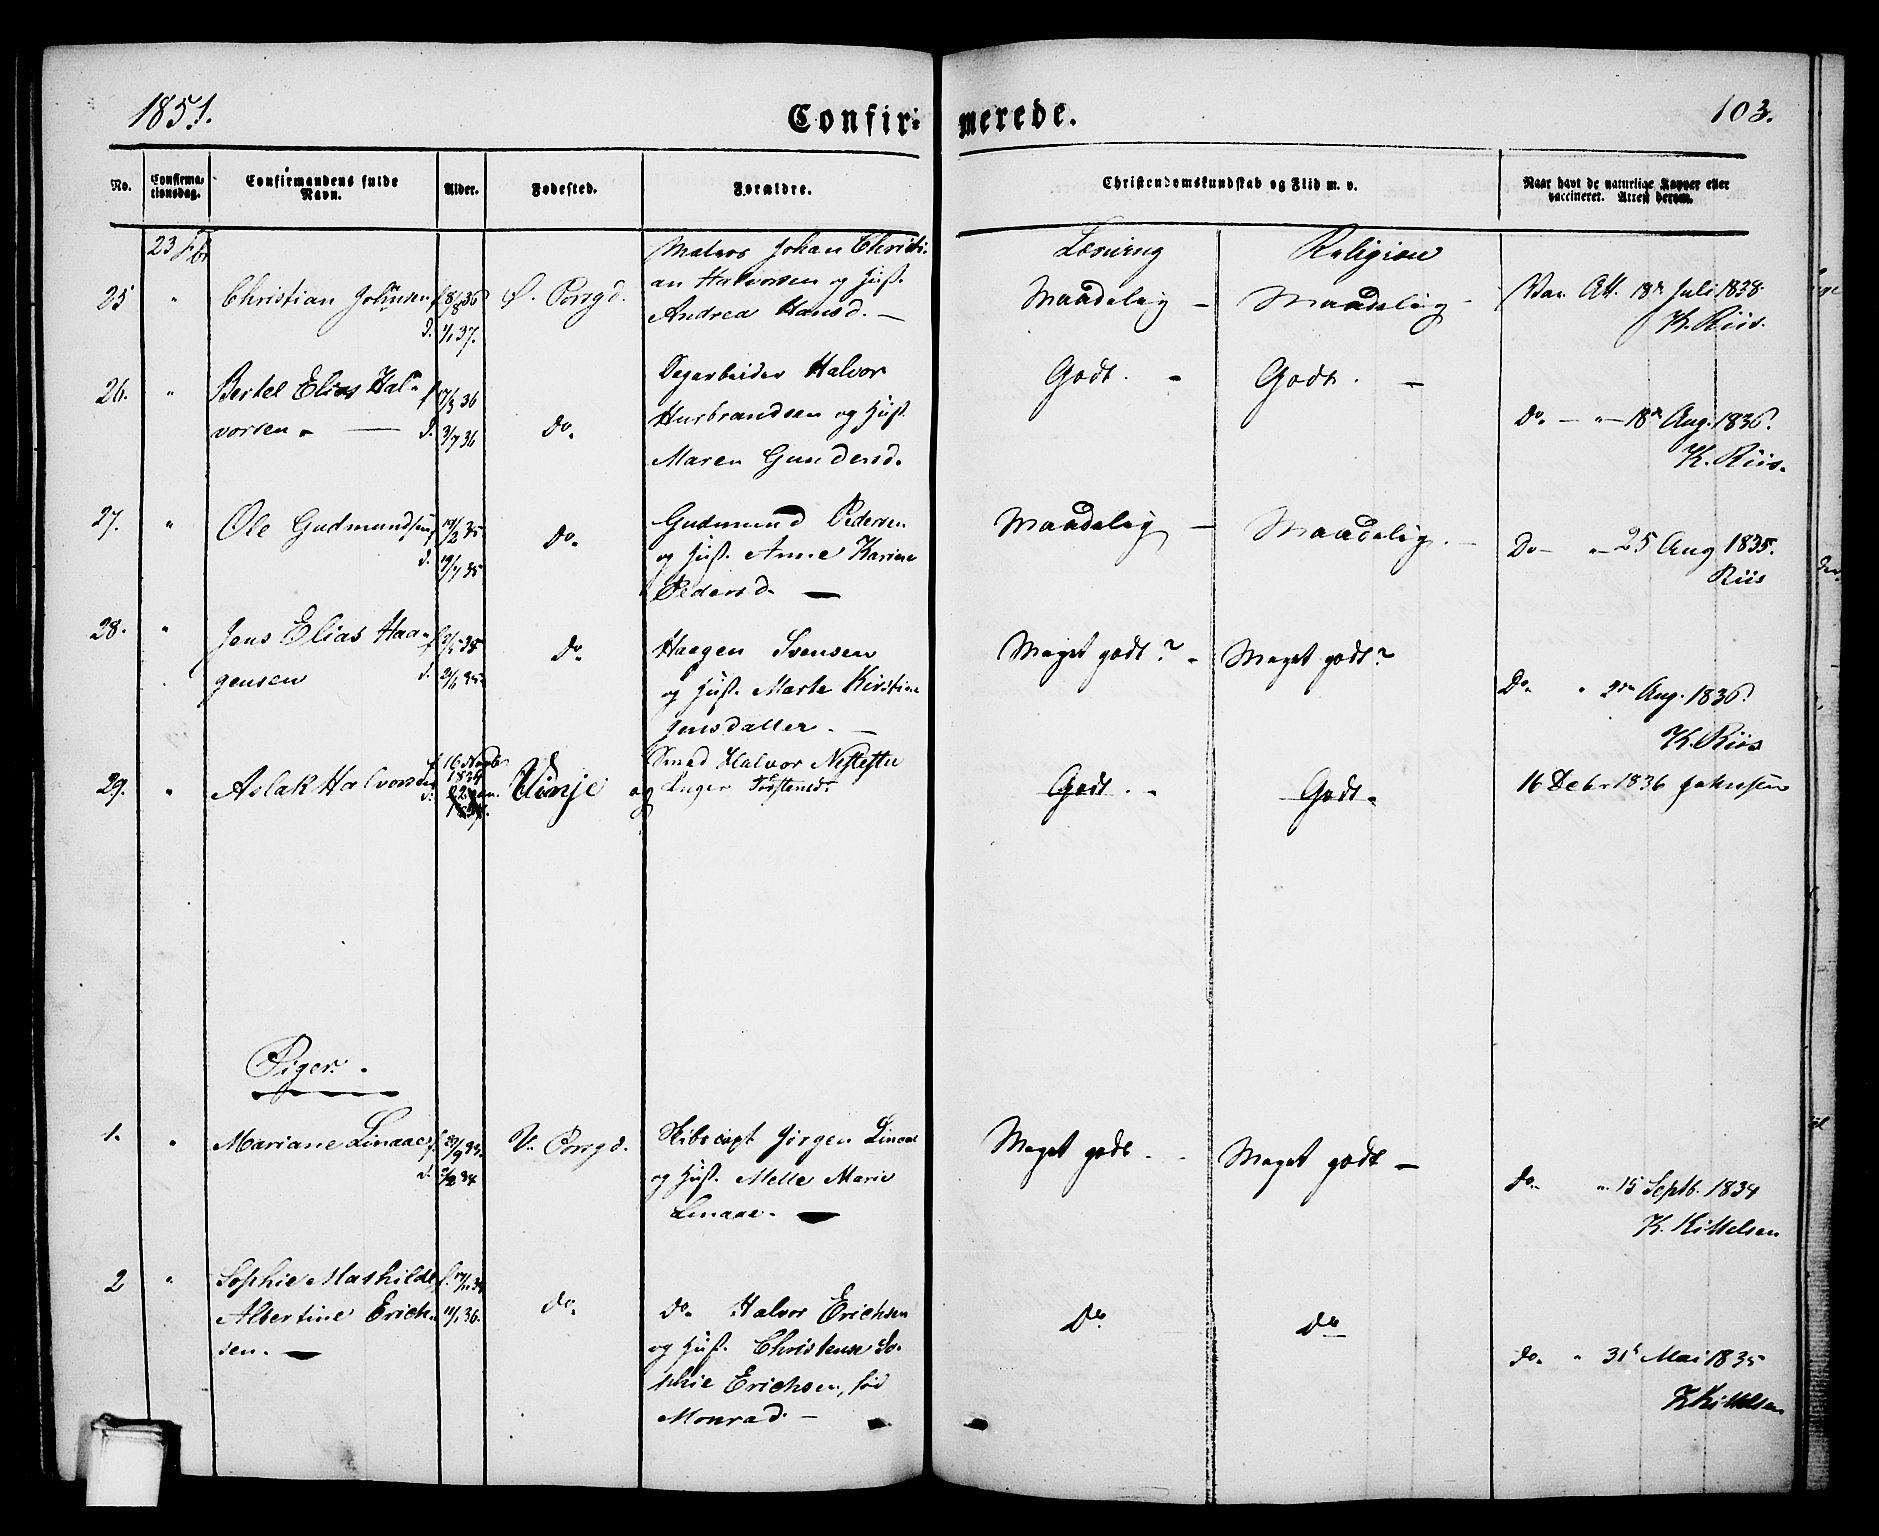 1851.
Confir- merede.
103.
No.
Confirma-
tionsdag.
Confirmandens fulde
Navn.
Alder.
Fødested.
Forældre.
Christendomskundskab og Flid m. v.
Naar havt de naturlige Kopper eller
vaccineret. Attest derom.
Læsning Religion
23 Fbr
25 " Christian Johnsen f. 8/8 36 Ø. Porsgd.
d. 1/1 37.
Matros Johan Christi-
an Halvorsen og Hust.
Andrea Hansd. —
Maadelig — Maadelig -
Vac. Att. 18de Juli 1838.
K. Riis.
26. " Bertel Elias Hal- f. 17/3 36
vorsen. — d. 3/7 36 Do.
Dagarbeider Halvor
Hurbrandsen og Hust.
Maren Gundersd.
Godt. - Godt. —
Do. — " — 18de Aug. 1836.
K. Riis.
27. " Ole Gudmundsen f. 19/2 35
d. 19/7 35 Do.
Gudmund Pedersen
og Hust. Anne Karine
Pedersd. —
Maadelig — Maadelig. —
Do — " 25 Aug 1835.
Riis
28. " Jens Elias Haa- f. 35
gensen d. 35. Do.
Haagen Svensen
og Hust. Marte Kirstine
Jensdatter. —
Meget godt? - Meget godt?
Do. " Aug. 1836.
K. Riis
29. " Aslak Halvorsen f. 16 Novbr
1834
d. 22 Jan.
Vinje
Smed Halvor
og Inger Torstensd.
Godt. - Godt.
16 Debr 1836 Johnsen
Piger.
1. " Mariane Linaae f. 9 33.
d. 2/2 34 V. Porsgd.
Skibscapt Jørgen Linaae
og Hust. Melle Marie
Linaae. —
Meget godt. - Meget godt —
do. " 15 Septb. 1834
K. Kittelsen
2 " Sophie Mathilde f. 34
Albertine Erich- 11/1 36. do.
sen. —
do. Halvor Erichsen
og Hust. Christense So-
phie Erichsen, fød
Monrad. —
Do Do
do. " 31te Mai 1835
K Kittelsen